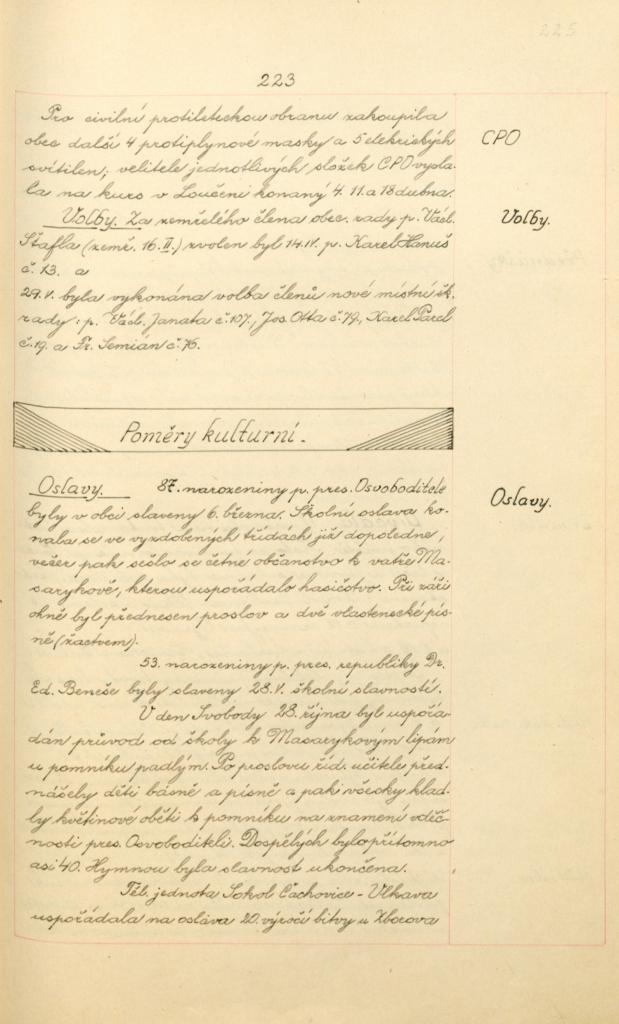 225
223
Pro civilní protileteckou obranu zakoupila
obec další 4 protiplynové masky a 5 elekrických
svítilen; velitele jednotlivých složek CPO vysla-
la na kurs v Loučeni konaný 4. 11. a 18 dubna.
CPO
Volby. Za zemřelého člena obec. rady p. Václ.
Štafla (zemř. 16. II.) zvolen byl 14. IV. p. Karel Hanuš
č. 13. a
Volby.
29. V. byla vykonána volba členů nové místní šk.
rady: p. Václ. Janata č. 107., Jos. Otta č. 79., Karel Pavel
č. 19. a Fr. Semián č. 76.
Poměry kulturní.
Oslavy. 87. narozeniny p. pres. Osvoboditele
byly v obci slaveny 6. března. Školní oslava ko-
nala se ve vyzdobených třídách již dopoledne,
večer pak sešlo se četné občanstvo k vatře Ma-
sarykově, kterou uspořádalo hasičstvo. Při záři
ohně byl přednesen proslov a dvě vlastenecké pís-
ně (žactvem).
Oslavy.
53. narozeniny p. pres. republiky Dr.
Ed. Beneše byly slaveny 28. V. školní slavností.
V den Svobody 28. října byl uspořá-
dán průvod od školy k Masarykovým lipám
u pomníku padlým. Po proslovu říd. učitele před-
nášely děti básně a písně a pak všecky klad-
ly květinové oběti k pomníku na znamení vděč-
nosti pres. Osvoboditeli. Dospělých bylo přítomno
asi 40. Hymnou byla slavnost ukončena.
Těl. jednota Sokol Čachovice - Vlkava
uspořádala na oslavu 20. výročí bitvy u Zborova